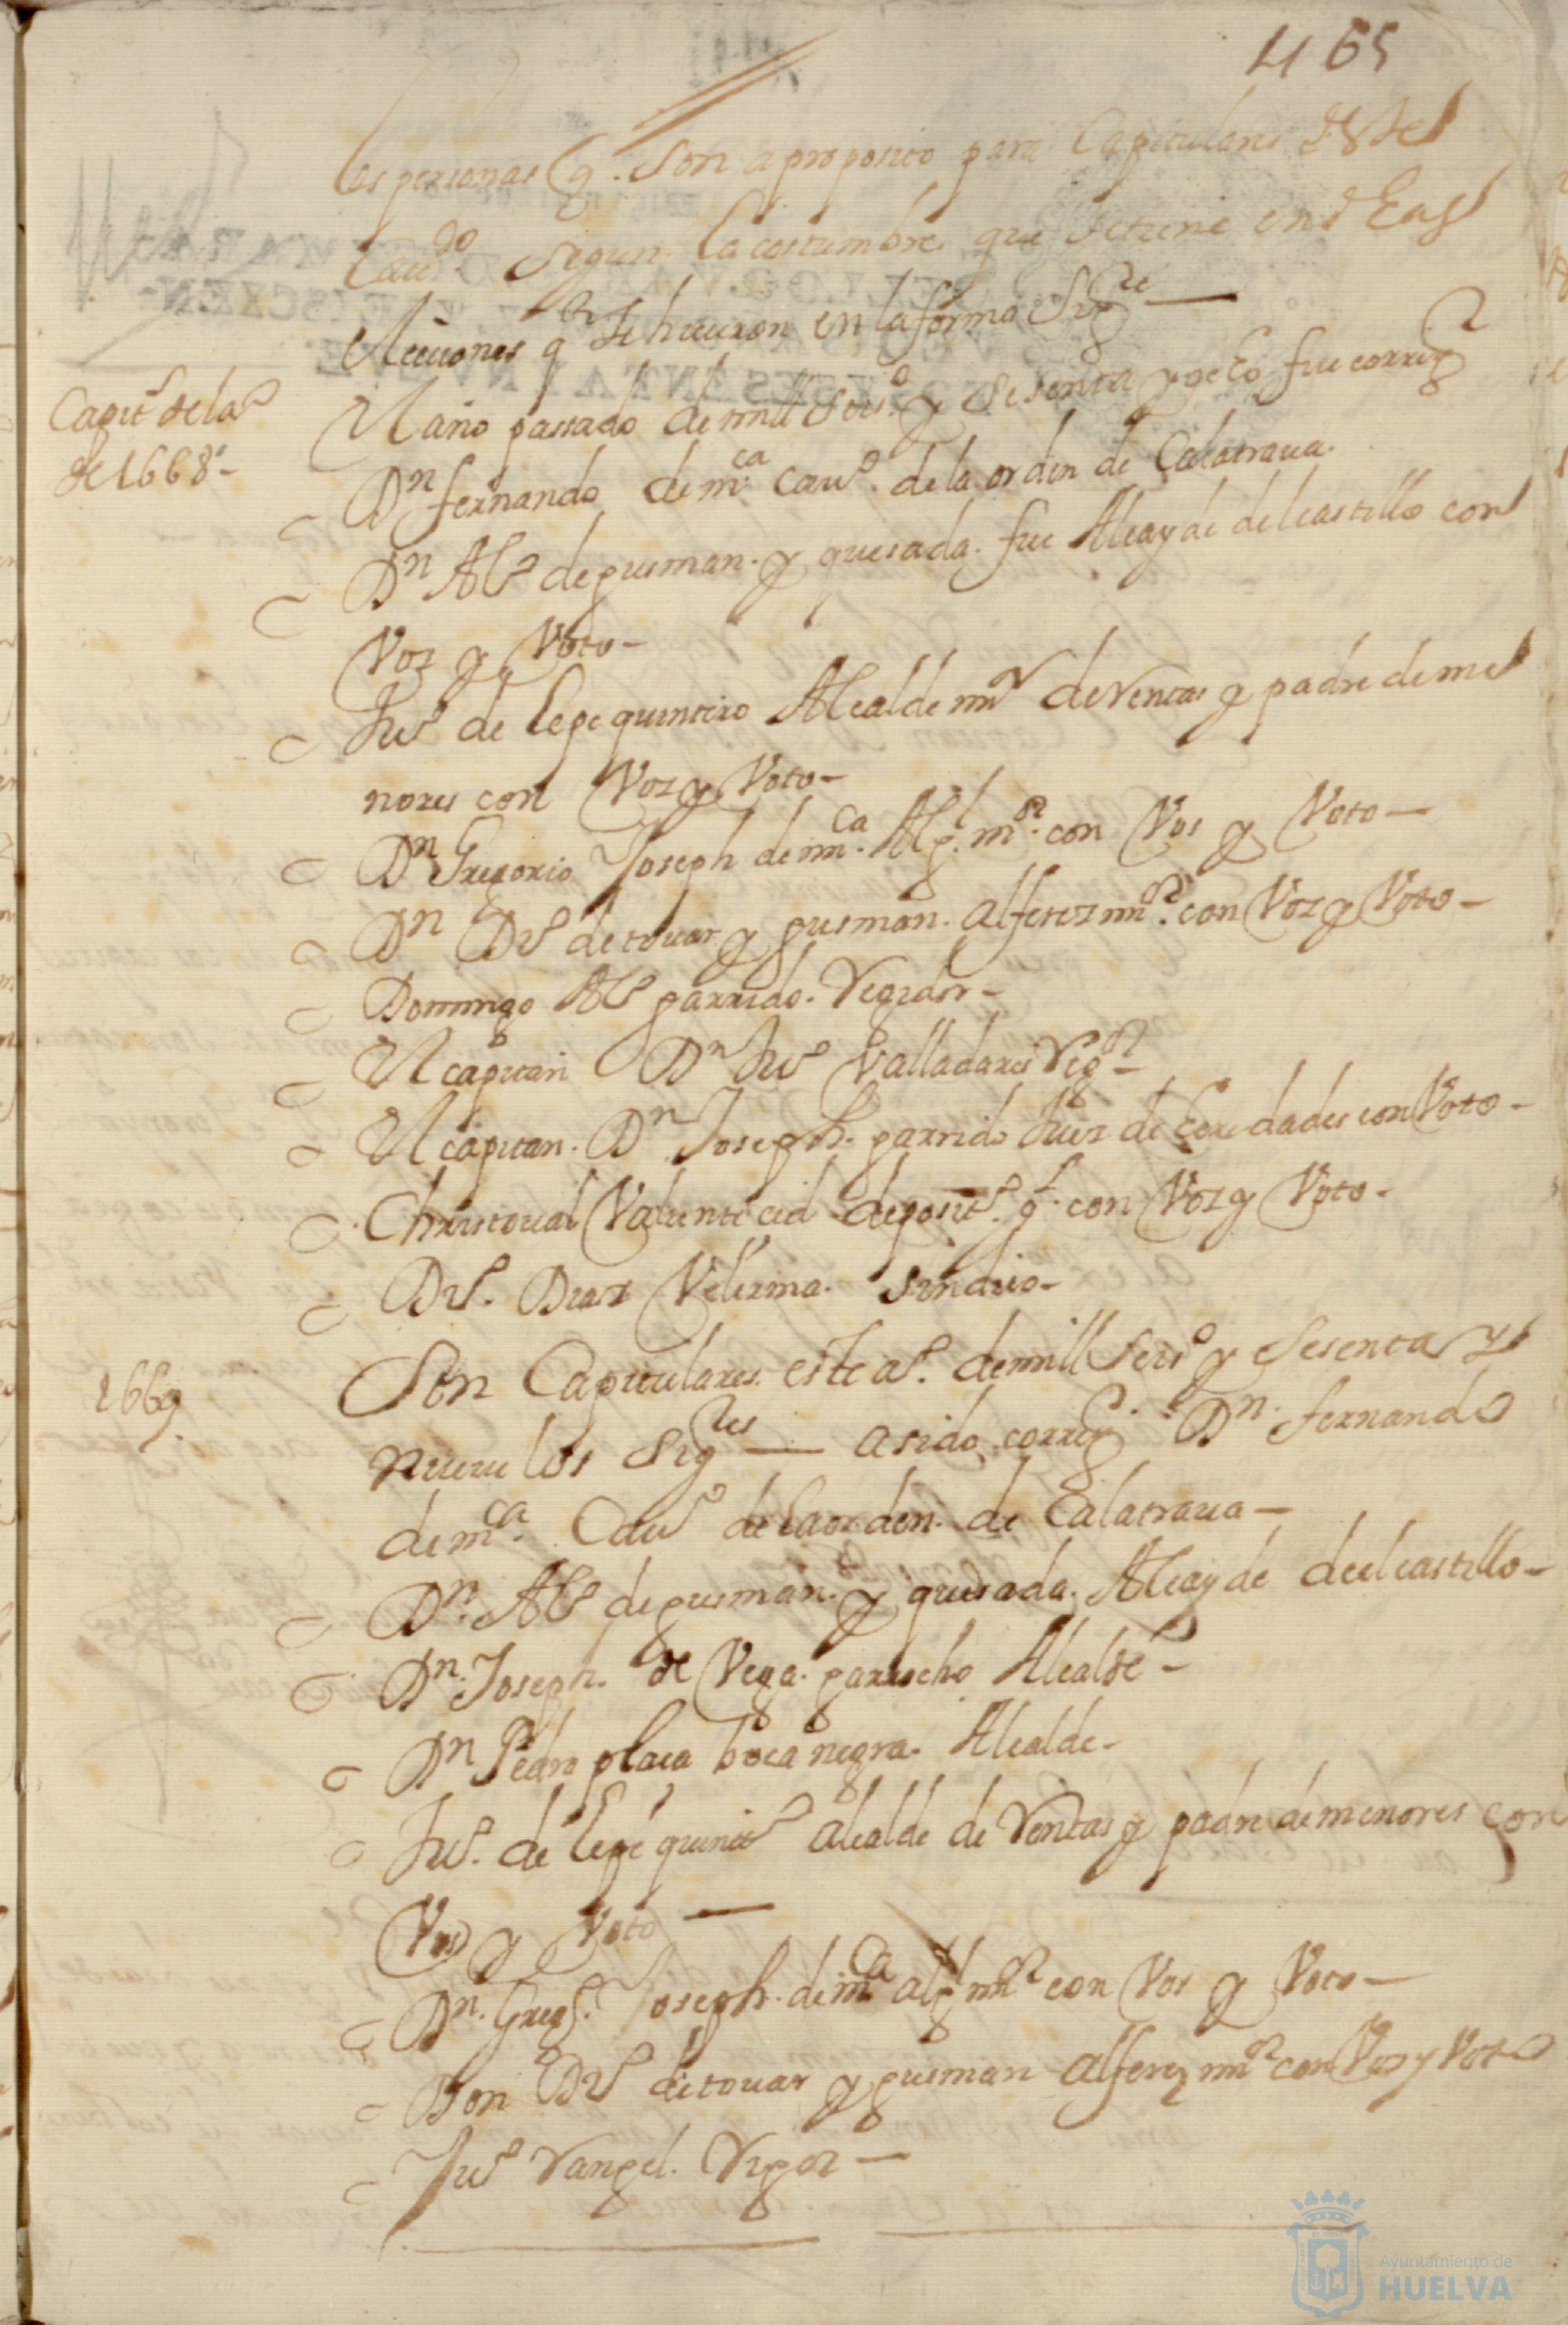 465
Las personas q. son aproposito para Capitulares deste
Cauº segun la costumbre que se tiene en las
Elecciones q se hicieron en la forma Sigte —
Capits de la
de 1668 -
El año passado de mill seisº y sesenta y ocho fue corregº
Dn fernando de mca cauº. de la orden de Calatraua.
Dn Alº de gusman. y quesada. fue Alcayde del castillo con
Voz y Voto -
Juº de lepe quintero Alcalde mr de Ventas y padre de me
nores con Voz y Voto -
Dn Gregorio Joseph de mca. Algl mor. con Vos y Voto —
Dn Dº de touar y gusman. alferez mor. con Voz y Voto -
Domingo Alº garrido. Regidor -
El capitan Dn Juº Valladares Regor -
El capitan. Dn Joseph. garrido Juez de heredades con Voto -
Christoual Valiente cid deposº. gl. con Voz y Voto -
Dº. Diaz Velerma. sindico -
1669
Son Capitulares este aº. de mill seisº y sesenta y
nueue los Sigtes — a sido corregº. Dn. fernando
de mca. Cauº de la orden. de Calatraua —
Dn. Alº de gusman. y quesada. Alcayde del castillo -
Dn. Joseph. de Vega. garrocho Alcalde -
Dn Pedro plaça boca negra. Alcalde -
Juº. de lepe quintº alcalde de Ventas y padre de menores con
Vos y Voto —
Dn. Gregº. Joseph. de mca algl mor con Vos y Voto —
Don Dº de touar y gusman alferez mor con Voz y Voto
Juº Rangel. Rigor —
Ayuntamiento de
HUELVA